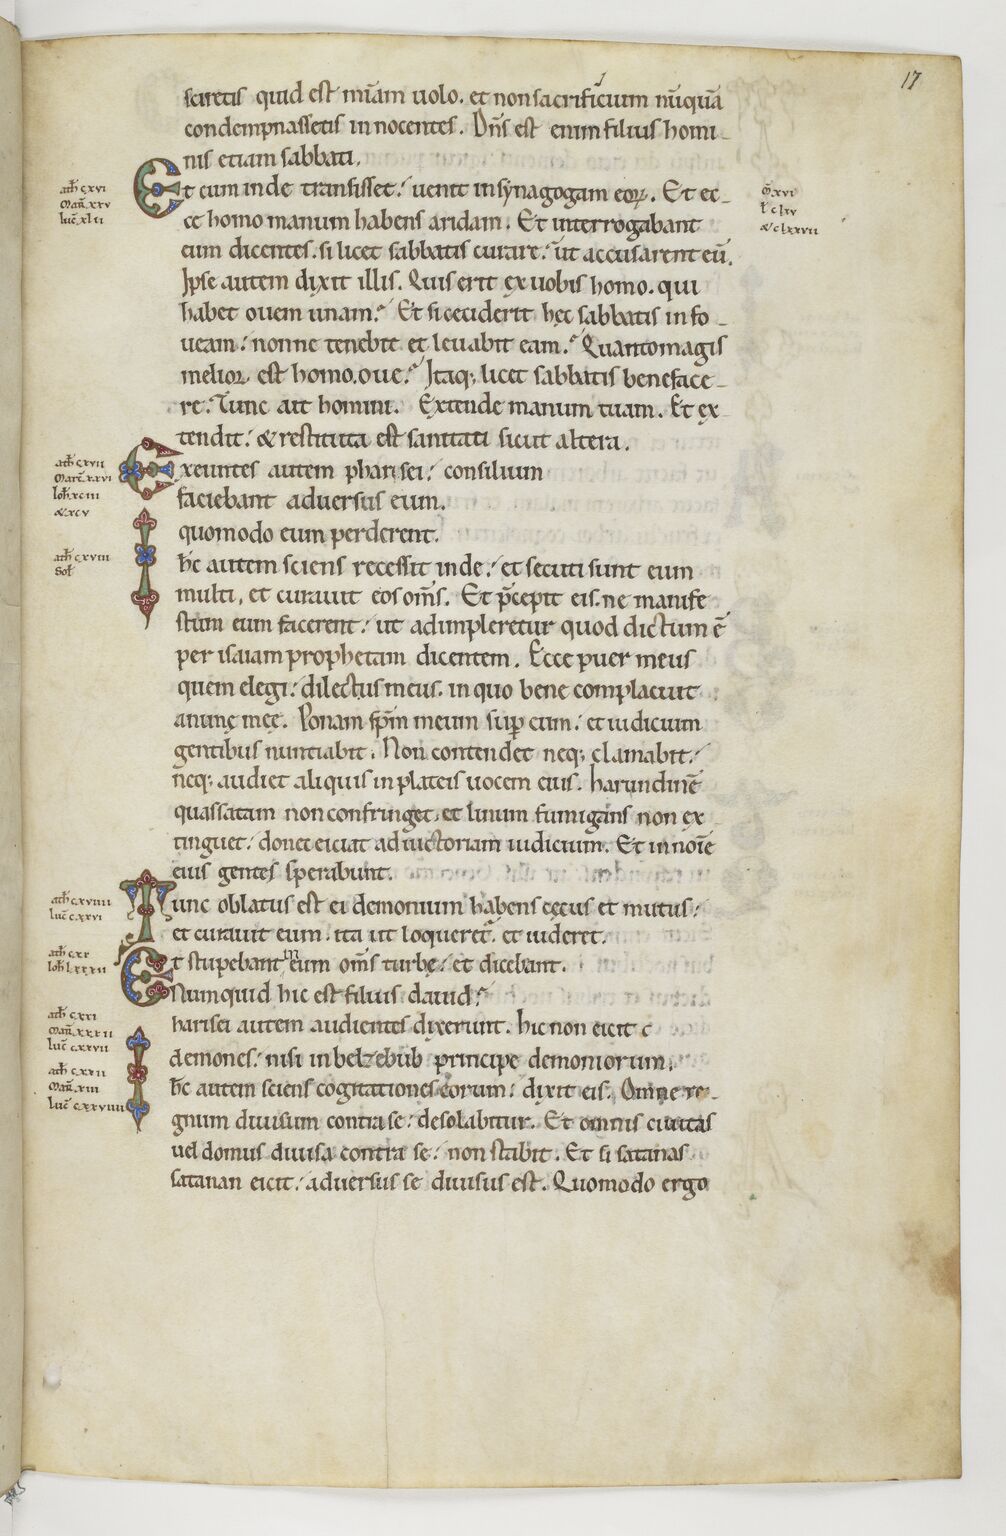 17
sciretis quid est mīam uolo. et non sacrificium nūquā
condempnassetis innocentes. Dn̄s est enim filius homi-
nis etiam sabbati.
Et cum inde transisset: uenit in synagogam eoꝝ. Et ec-
ce homo manum habens aridam. Et interrogabant
eum dicentes. si licet sabbatis curare: ut accusarent eū.
Ipse autem dixit illis. Quis erit ex uobis homo. qui
habet ouem unam: Et si ceciderit hęc sabbatis in fo-
ueam: nonne tenebit et leuabit eam. Quanto magis
melior est homo. oue. Itaq; licet sabbatis beneface-
re. Tunc ait homini. Extende manum tuam. Et ex
tendit: & restituta est sanitati sicut altera.
Exeuntes autem pharisei: consilium
faciebant aduersus eum.
quomodo eum perderent.
Ih̄c autem sciens recessit inde: et secuti sunt eum
multi, et curauit eos om̄s. Et p̄cepit eis. ne manife
stum eum facerent: ut adimpleretur quod dictum ē
per isaiam prophetam dicentem. Ecce puer meus
quem elegi: dilectus meus. in quo bene complacuit
animę meę. Ponam sp̄m meum sup eum: et iudicium
gentibus nuntiabit. Non contendet neq; clamabit:
neq; audiet aliquis in plateis uocem eius. harundinē
quassatam non confringet. et linum fumigans non ex
tinguet: donec eiciat ad uictoriam iudicium. Et in noīe
eius gentes sperabunt.
Tunc oblatus est ei demonium habens cęcus et mutus:
et curauit eum. ita ut loqueret. et uideret.
Et stupebant eum om̄s turbę: et dicebant.
Numquid hic est filius dauid.
harisei autem audientes dixerunt. hic non eicit
demones: nisi in belzebub principe demoniorum.
Ih̄c autem sciens cogitationes eorum: dixit eis. Omne re-
gnum diuisum contra se: desolabitur. Et omnis ciuitas
uel domus diuisa contra se: non stabit. Et si satanas
satanan eicit: aduersus se diuisus est. Quomodo ergo
cxvi
xxv
xlii
xvi
lxv
& clxxvii
cxvii
xxvi
xciii
& xcv
cxviii
Sol
cxviiii
cxxvi
cxx
lxxxii
cxxi
xxxii
cxxvii
cxxii
xiii
cxxviiii